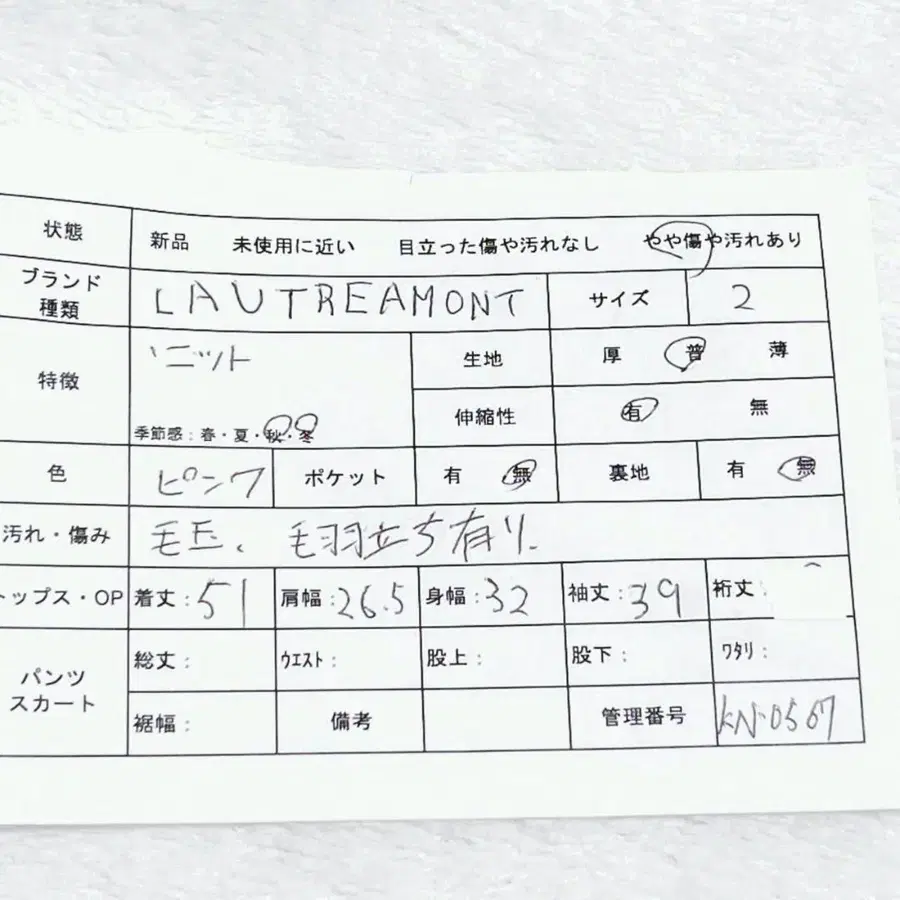 状態 新品 未使用に近い 目立った傷や汚れなし やや傷や汚れあり
ブランド
種類 LAUTREAMONT サイズ 2
特徴 ニット 生地 厚 普 薄
季節感：春・夏・秋・冬 伸縮性 有 無
色 ピンク ポケット 有 無 裏地 有 無
汚れ・傷み 毛玉、毛羽立ち有り.
トップス・OP 着丈：51 肩幅：26.5 身幅：32 袖丈：39 裄丈：
パンツ
スカート 総丈： ウエスト： 股上： 股下： ワタリ：
裾幅： 備考 管理番号 KN-0567